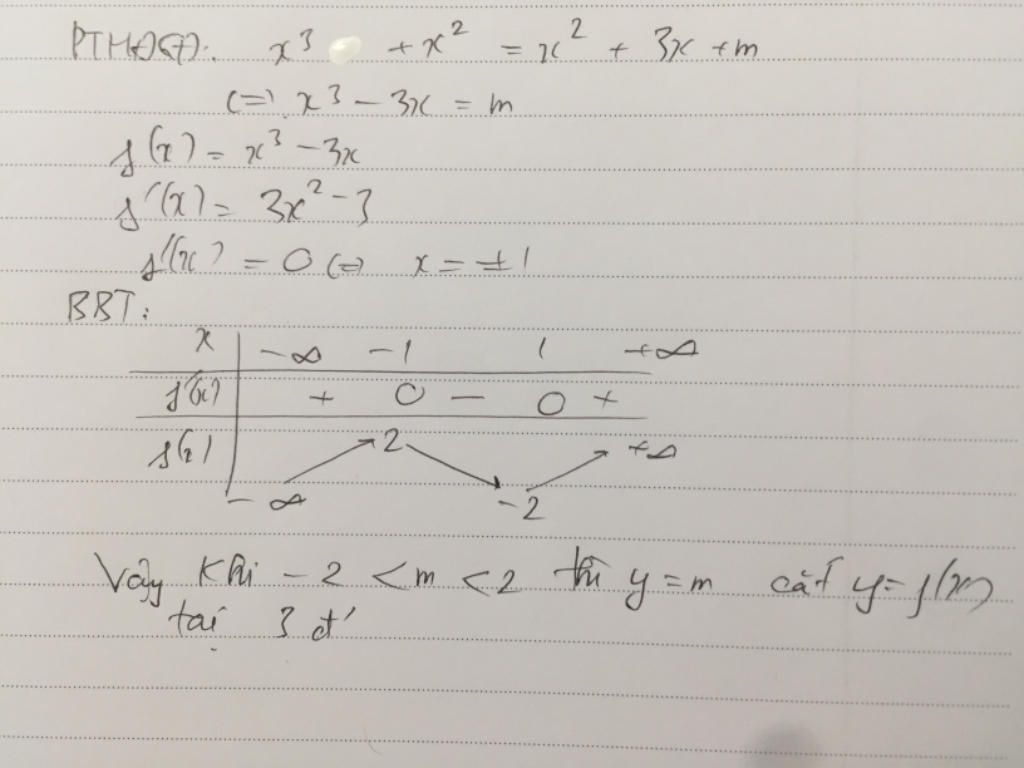 PTHĐGĐ: x³ + x² = x² + 3x + m
(=) x³ - 3x = m
f(x) = x³ - 3x
f'(x) = 3x² - 3
f'(x) = 0 (=) x = ±1
BBT:
x -∞ -1 1 +∞
f'(x) + 0 - 0 +
f(x) -∞ 2 -2 +∞
Vậy khi -2 < m < 2 thì y = m cắt y = f(x)
tại 3 đ'